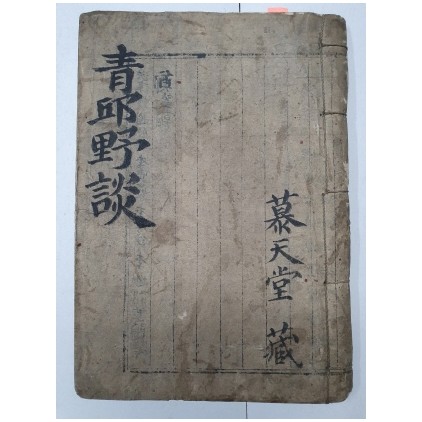 青邱野談
慕天堂 藏